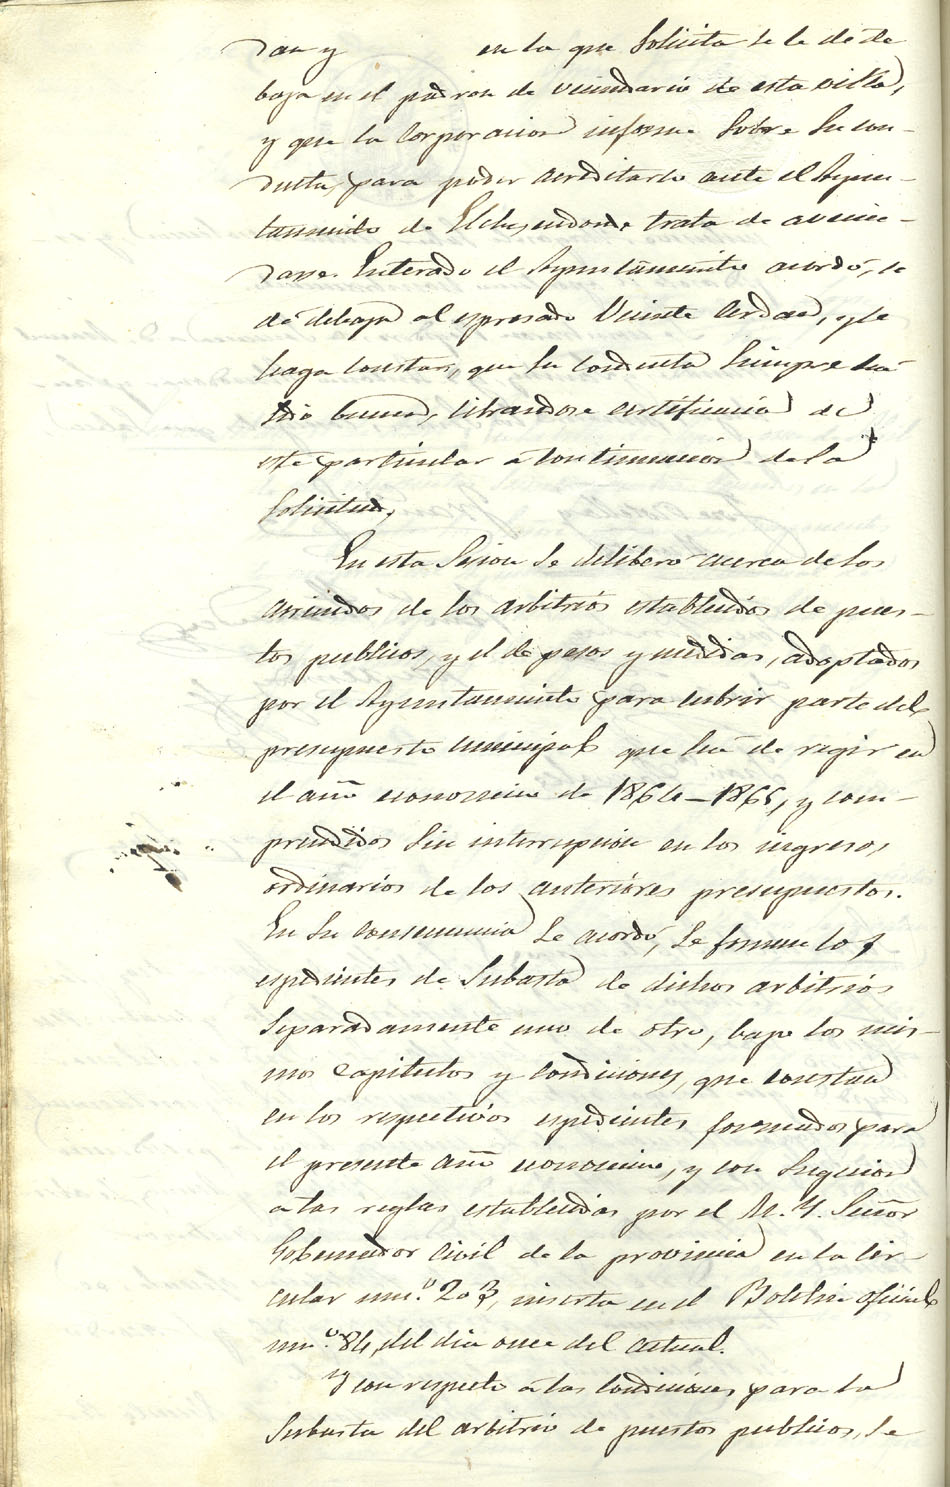 dan y en la que solicita se le dé de
baja en el padron de vecindario de esta villa,
y que la corporacion informe sobre su con-
ducta, para poder acreditarlo ante el Ayun-
tamiento de Elche, endonde trata de avecin-
darse. Enterado el Ayuntamiento acordó, se
dé debaja al espresado Vicente Cerdan, y se
haga constar, que su conducta siempre há
sido buena, librandose certificacion de
este particular á continuacion de la
solicitud.
En esta sesion se deliberó acerca de los
arriendos de los arbitrios establecidos de pues-
tos publicos, y el de pesos y medidas, adoptados
por el Ayuntamiento para cubrir parte del
presupuesto municipal que há de regir en
el año economico de 1864-1865, y com-
prendidos sin interrupcion en los ingresos
ordinarios de los anteriores presupuestos.
En su consecuencia se acordó, se formen los
espedientes de subasta de dichos arbitrios
separadamente uno de otro, bajo los mis-
mos capitulos y condiciones, que constan
en los respectivos espedientes formados para
el presente año economico, y con sugecion
a las reglas establecidas por el M. Y. Señor
Gobernador Civil de la provincia en la cir-
cular num.º 203, inserta en el Boletin oficial
num.º 84, del dia once del actual.
Y con respecto á las condiciones para la
subasta del arbitrio de puestos publicos, se